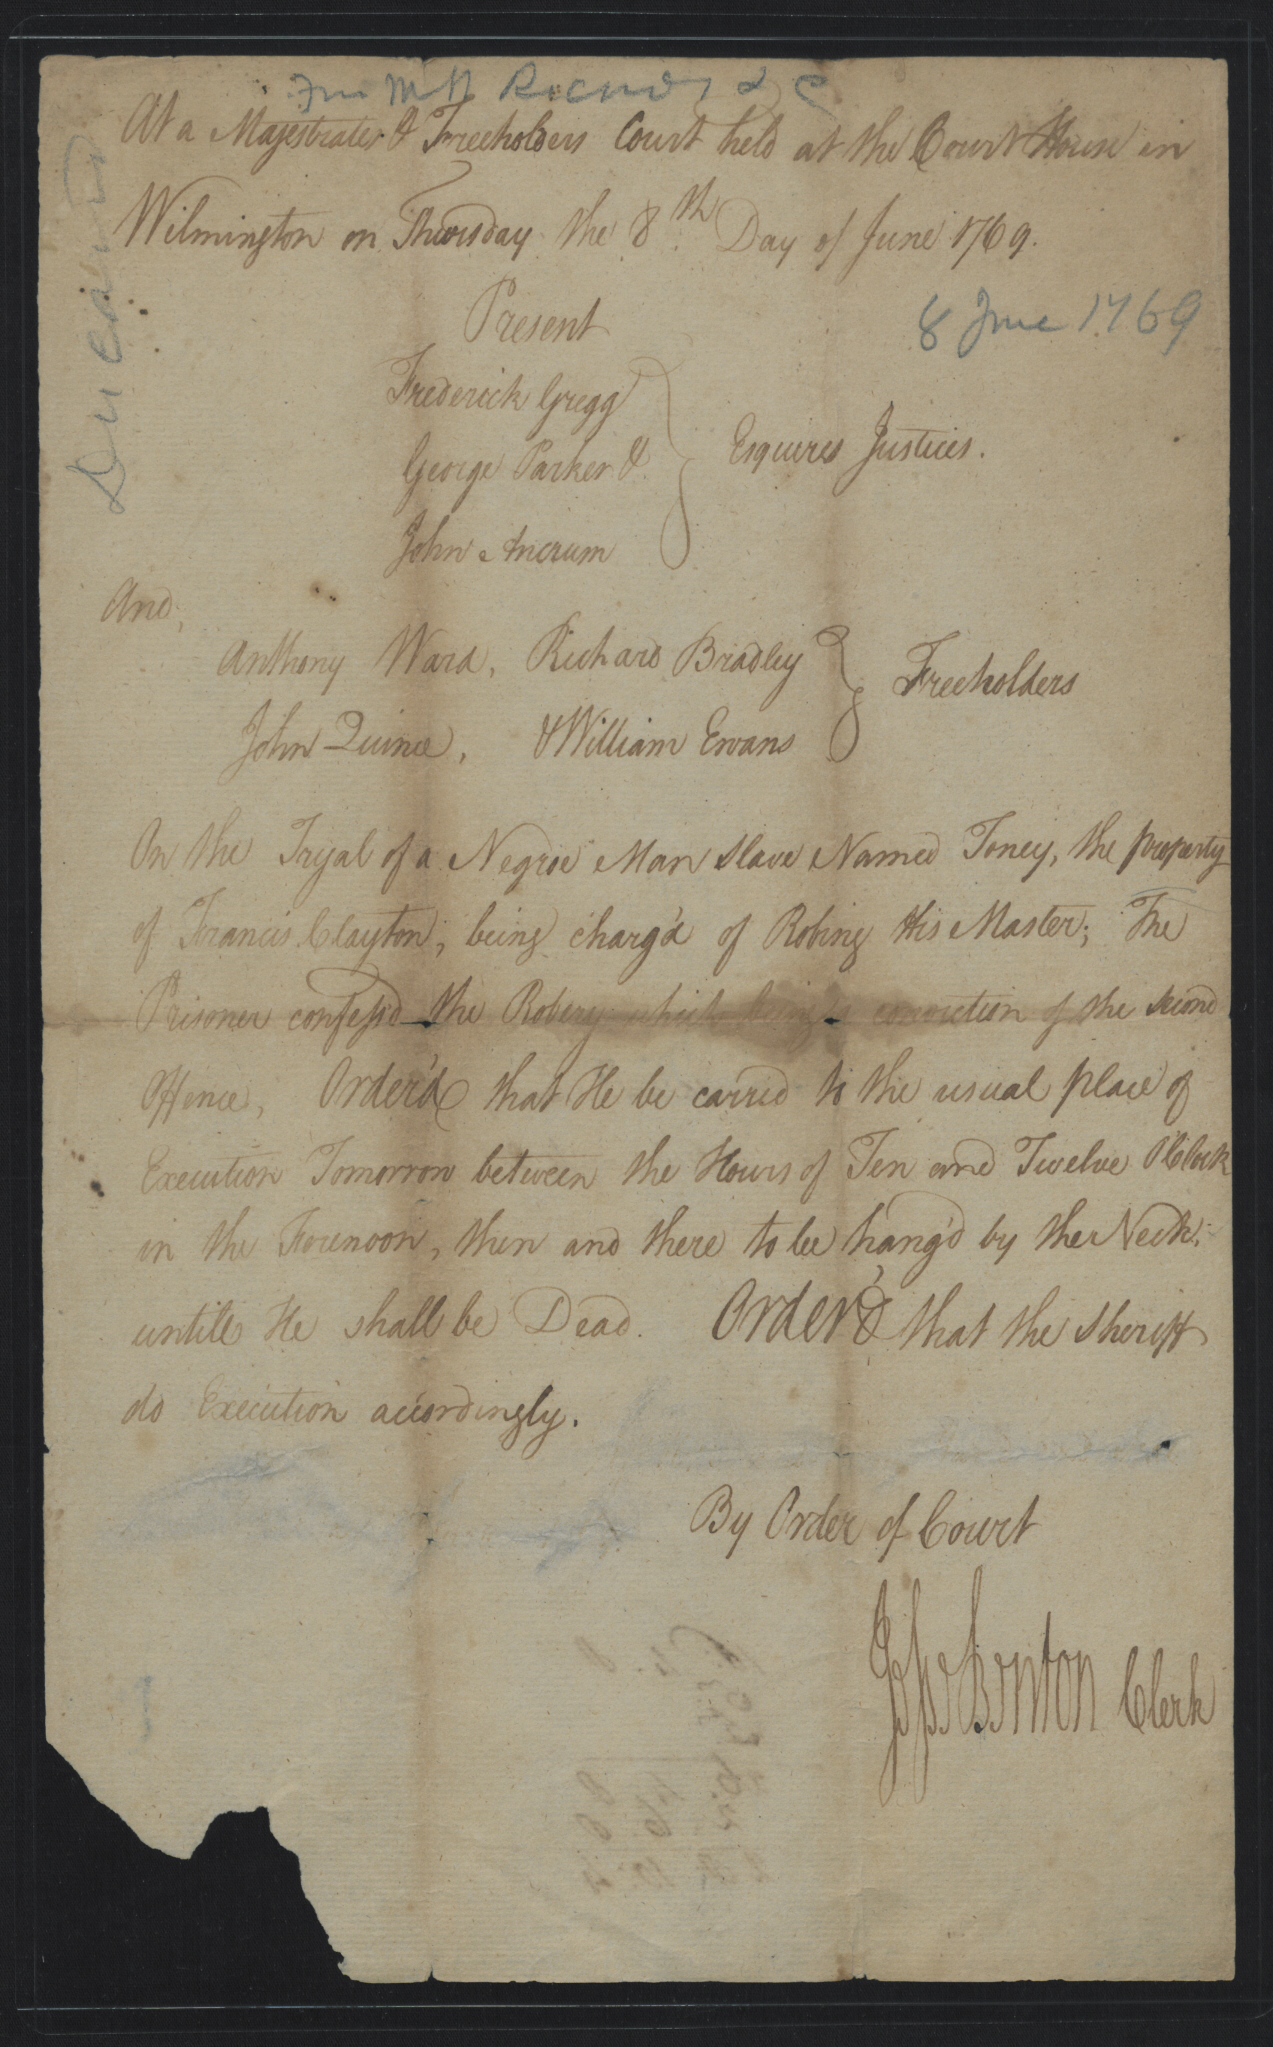 At a Majestrates & Freeholders Court held at the Court House in
Wilmington on Thursday the 8th Day of June 1769.
8 June 1769
Present
Frederick Gregg
George Parker &
John Ancrum
Esquires Justices.
And,
Anthony Ward, Richard Bradley
John Quince, & William Ewans
Freeholders
On the Tryal of a Negroe Man Slave Named Toney, the property
of Francis Clayton; being charg'd of Robing His Master; The
Prisoner confess'd the Robery which being a conviction of the second
Offence, Order'd that He be carried to the usual place of
Execution Tomorrow between the Hours of Ten and Twelve O'Clock
in the Forenoon, then and there to be hang'd by the Neck
untill He shall be Dead. Order'd that the Sheriff
do Execution accordingly.
By Order of Court
Benton Clerk